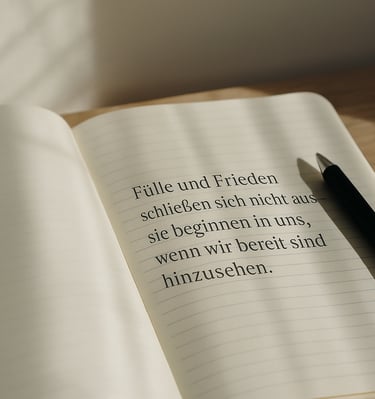 Fülle und Frieden
schließen sich nicht aus–
sie beginnen in uns,
wenn wir bereit sind
hinzusehen.